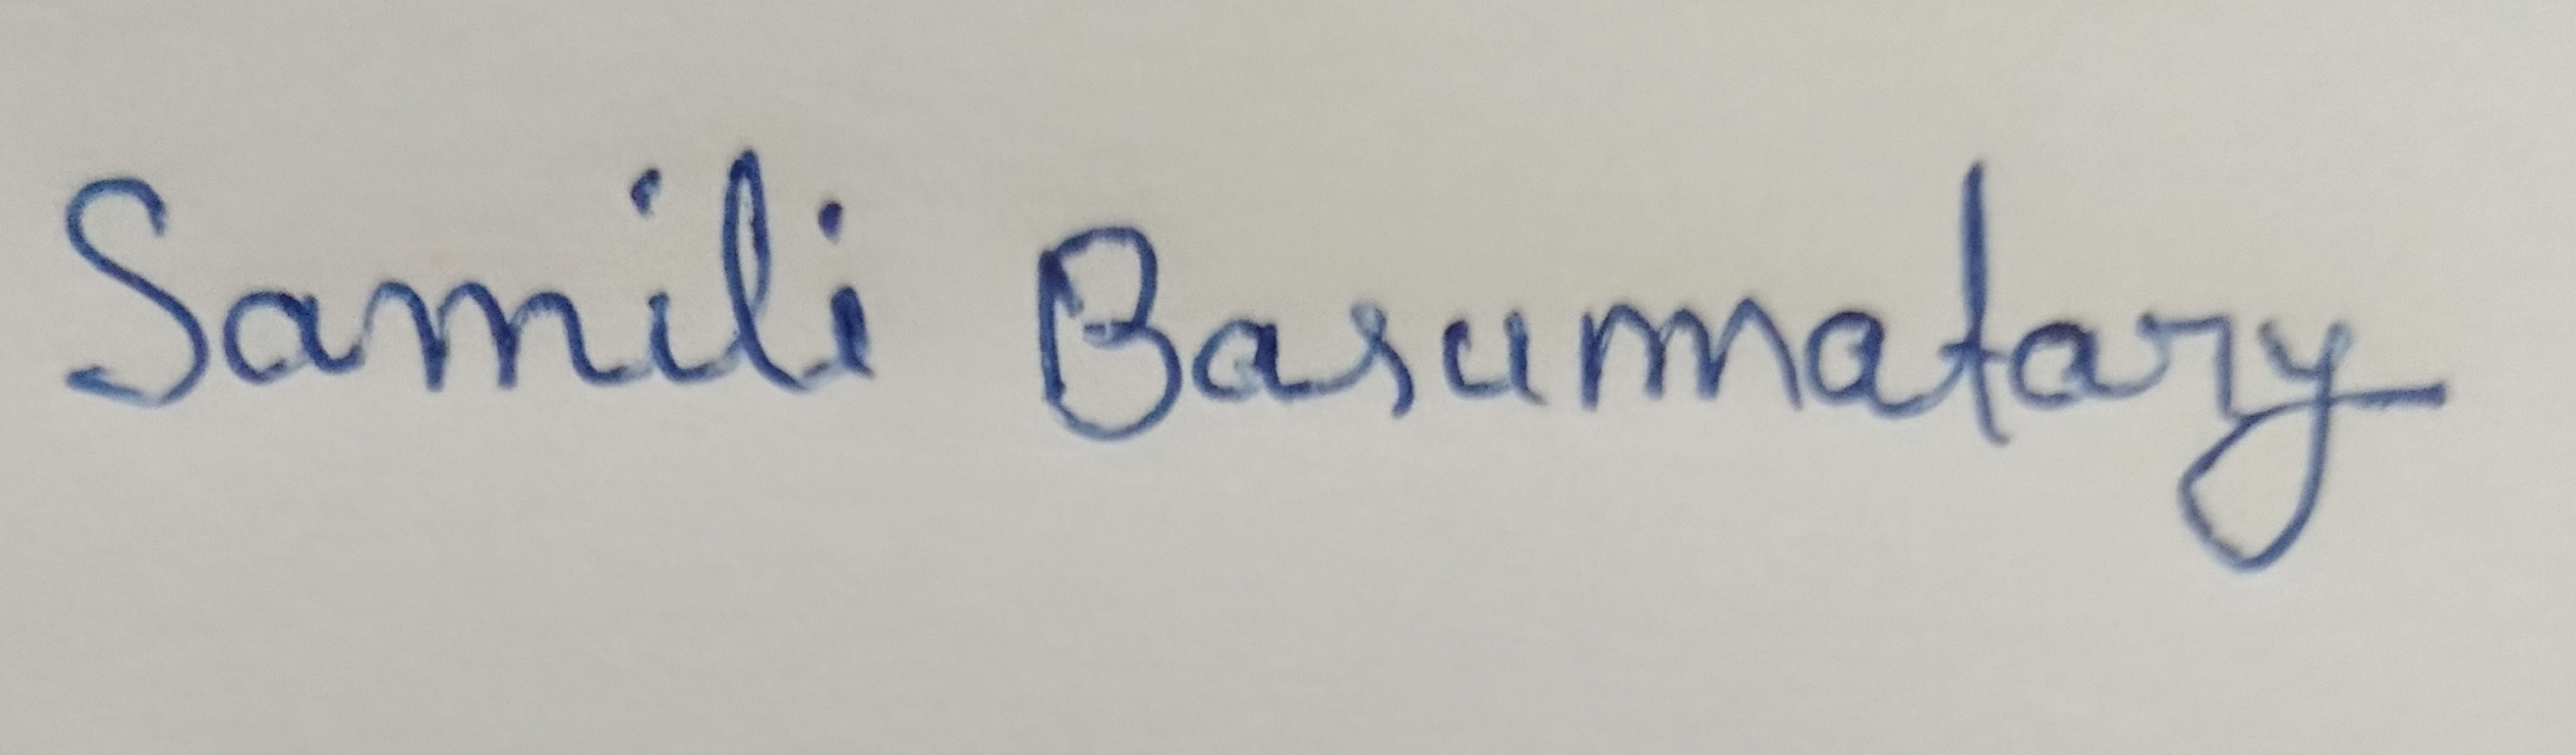 Samili Basumatary